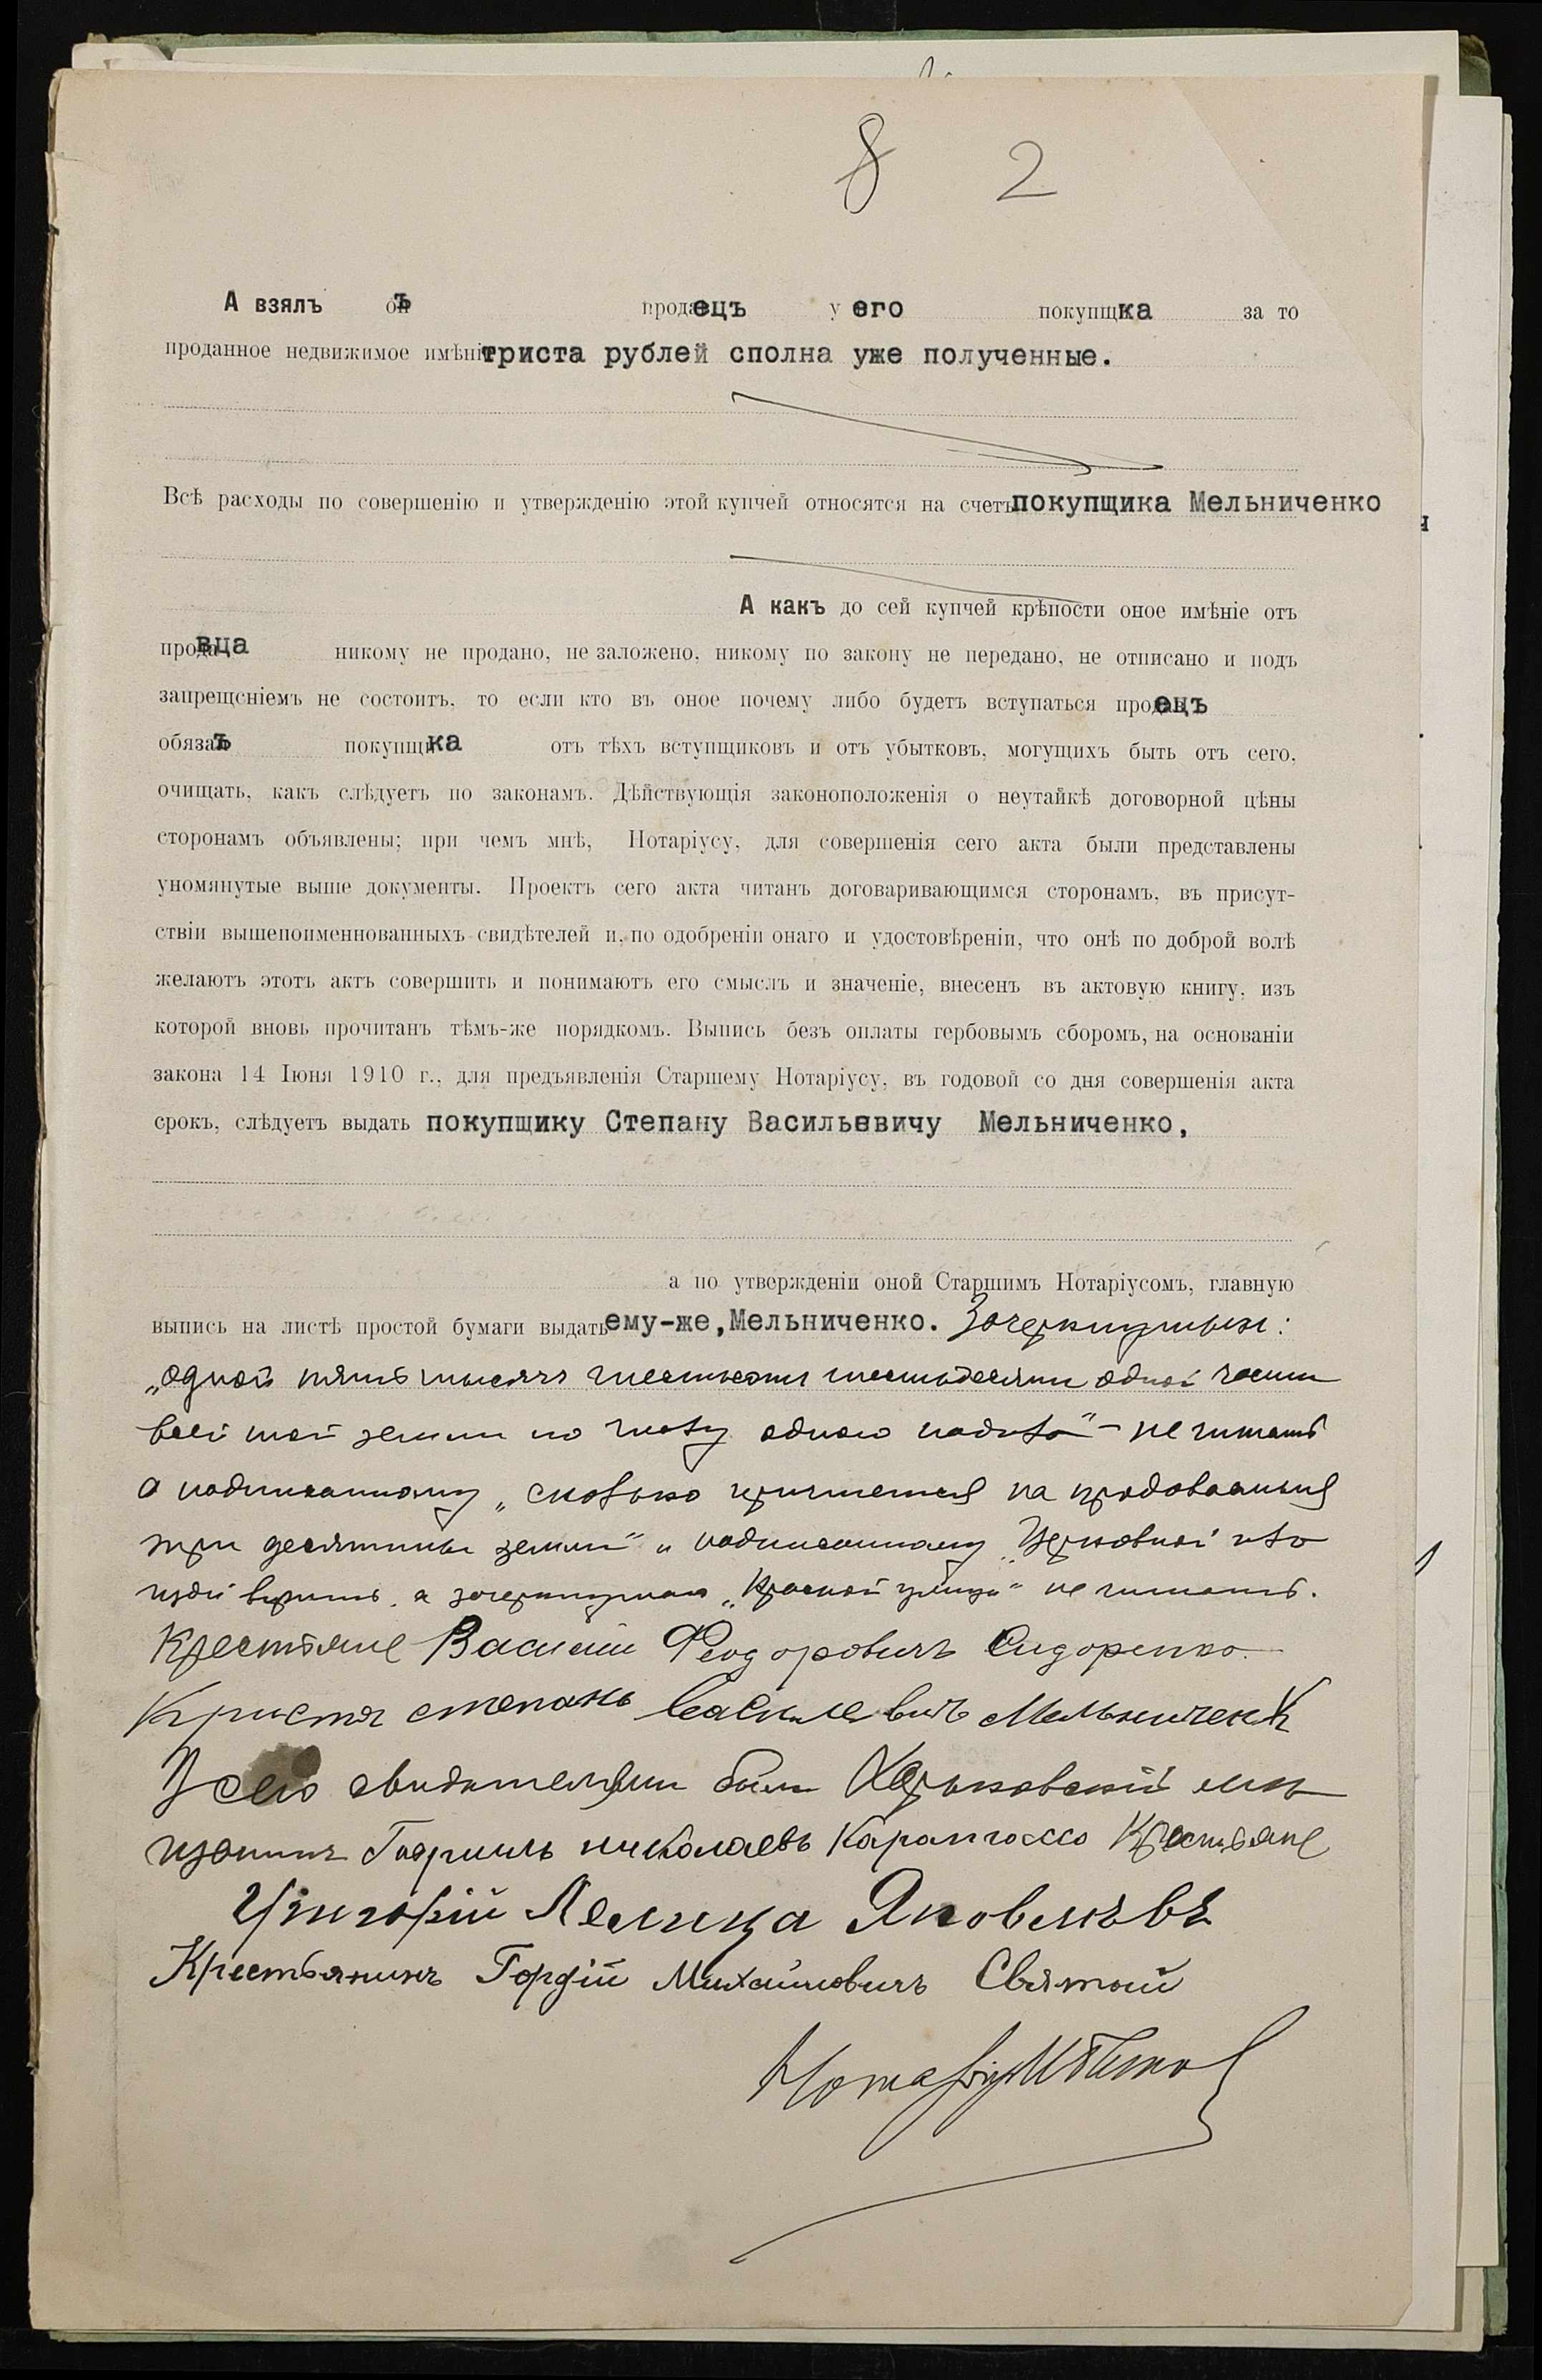 8 2
А взялъ онъ продавецъ у его покупщика за то
проданное недвижимое имѣніе триста рублей сполна уже полученные.
Всѣ расходы по совершенію и утвержденію этой купчей относятся на счетъ покупщика Мельниченко
А какъ до сей купчей крѣпости оное имѣніе отъ
продавца никому не продано, не заложено, никому по закону не передано, не отписано и подъ
запрещеніемъ не состоитъ, то если кто въ оное почему либо будетъ вступаться продавецъ
обязанъ покупщика отъ тѣхъ вступщиковъ и отъ убытковъ, могущихъ быть отъ сего,
очищать, какъ слѣдуетъ по законамъ. Дѣйствующія законоположенія о неутайкѣ договорной цѣны
сторонамъ объявлены; при чемъ мнѣ, Нотаріусу, для совершенія сего акта были представлены
упомянутые выше документы. Проектъ сего акта читанъ договаривающимся сторонамъ, въ присут-
ствіи вышепоименнованныхъ свидѣтелей и, по одобреніи онаго и удостовѣреніи, что онѣ по доброй волѣ
желаютъ этотъ актъ совершить и понимаютъ его смыслъ и значеніе, внесенъ въ актовую книгу, изъ
которой вновь прочитанъ тѣмъ-же порядкомъ. Выпись безъ оплаты гербовымъ сборомъ, на основаніи
закона 14 Іюня 1910 г., для предъявленія Старшему Нотаріусу, въ годовой со дня совершенія акта
срокъ, слѣдуетъ выдать покупщику Степану Васильевичу Мельниченко,
а по утвержденіи оной Старшимъ Нотаріусомъ, главную
выпись на листѣ простой бумаги выдать ему-же, Мельниченко. Зачеркнутыя:
„одной пять тысячъ шестьсотъ шестьдесятъ одной части
всей той земли по числу одного надѣла" - не читать
а надписанному „сколько причитается на продаваемыя
три десятины земли" и надписанному „Церковной
вѣрить, а зачеркнутыя „Красной улицы" не читать.
Крестьяне Василий Феодоровичъ Сидоренко.
степанъ Васильевичъ Мельниченк
У сего свидѣтелями были Харьковскій мѣ
щанинъ Гавриилъ николаевъ Крестьяне
Григорій Яковлевъ
Крестьянинъ Гордій Михайловичъ Святой
Нотаріусъ